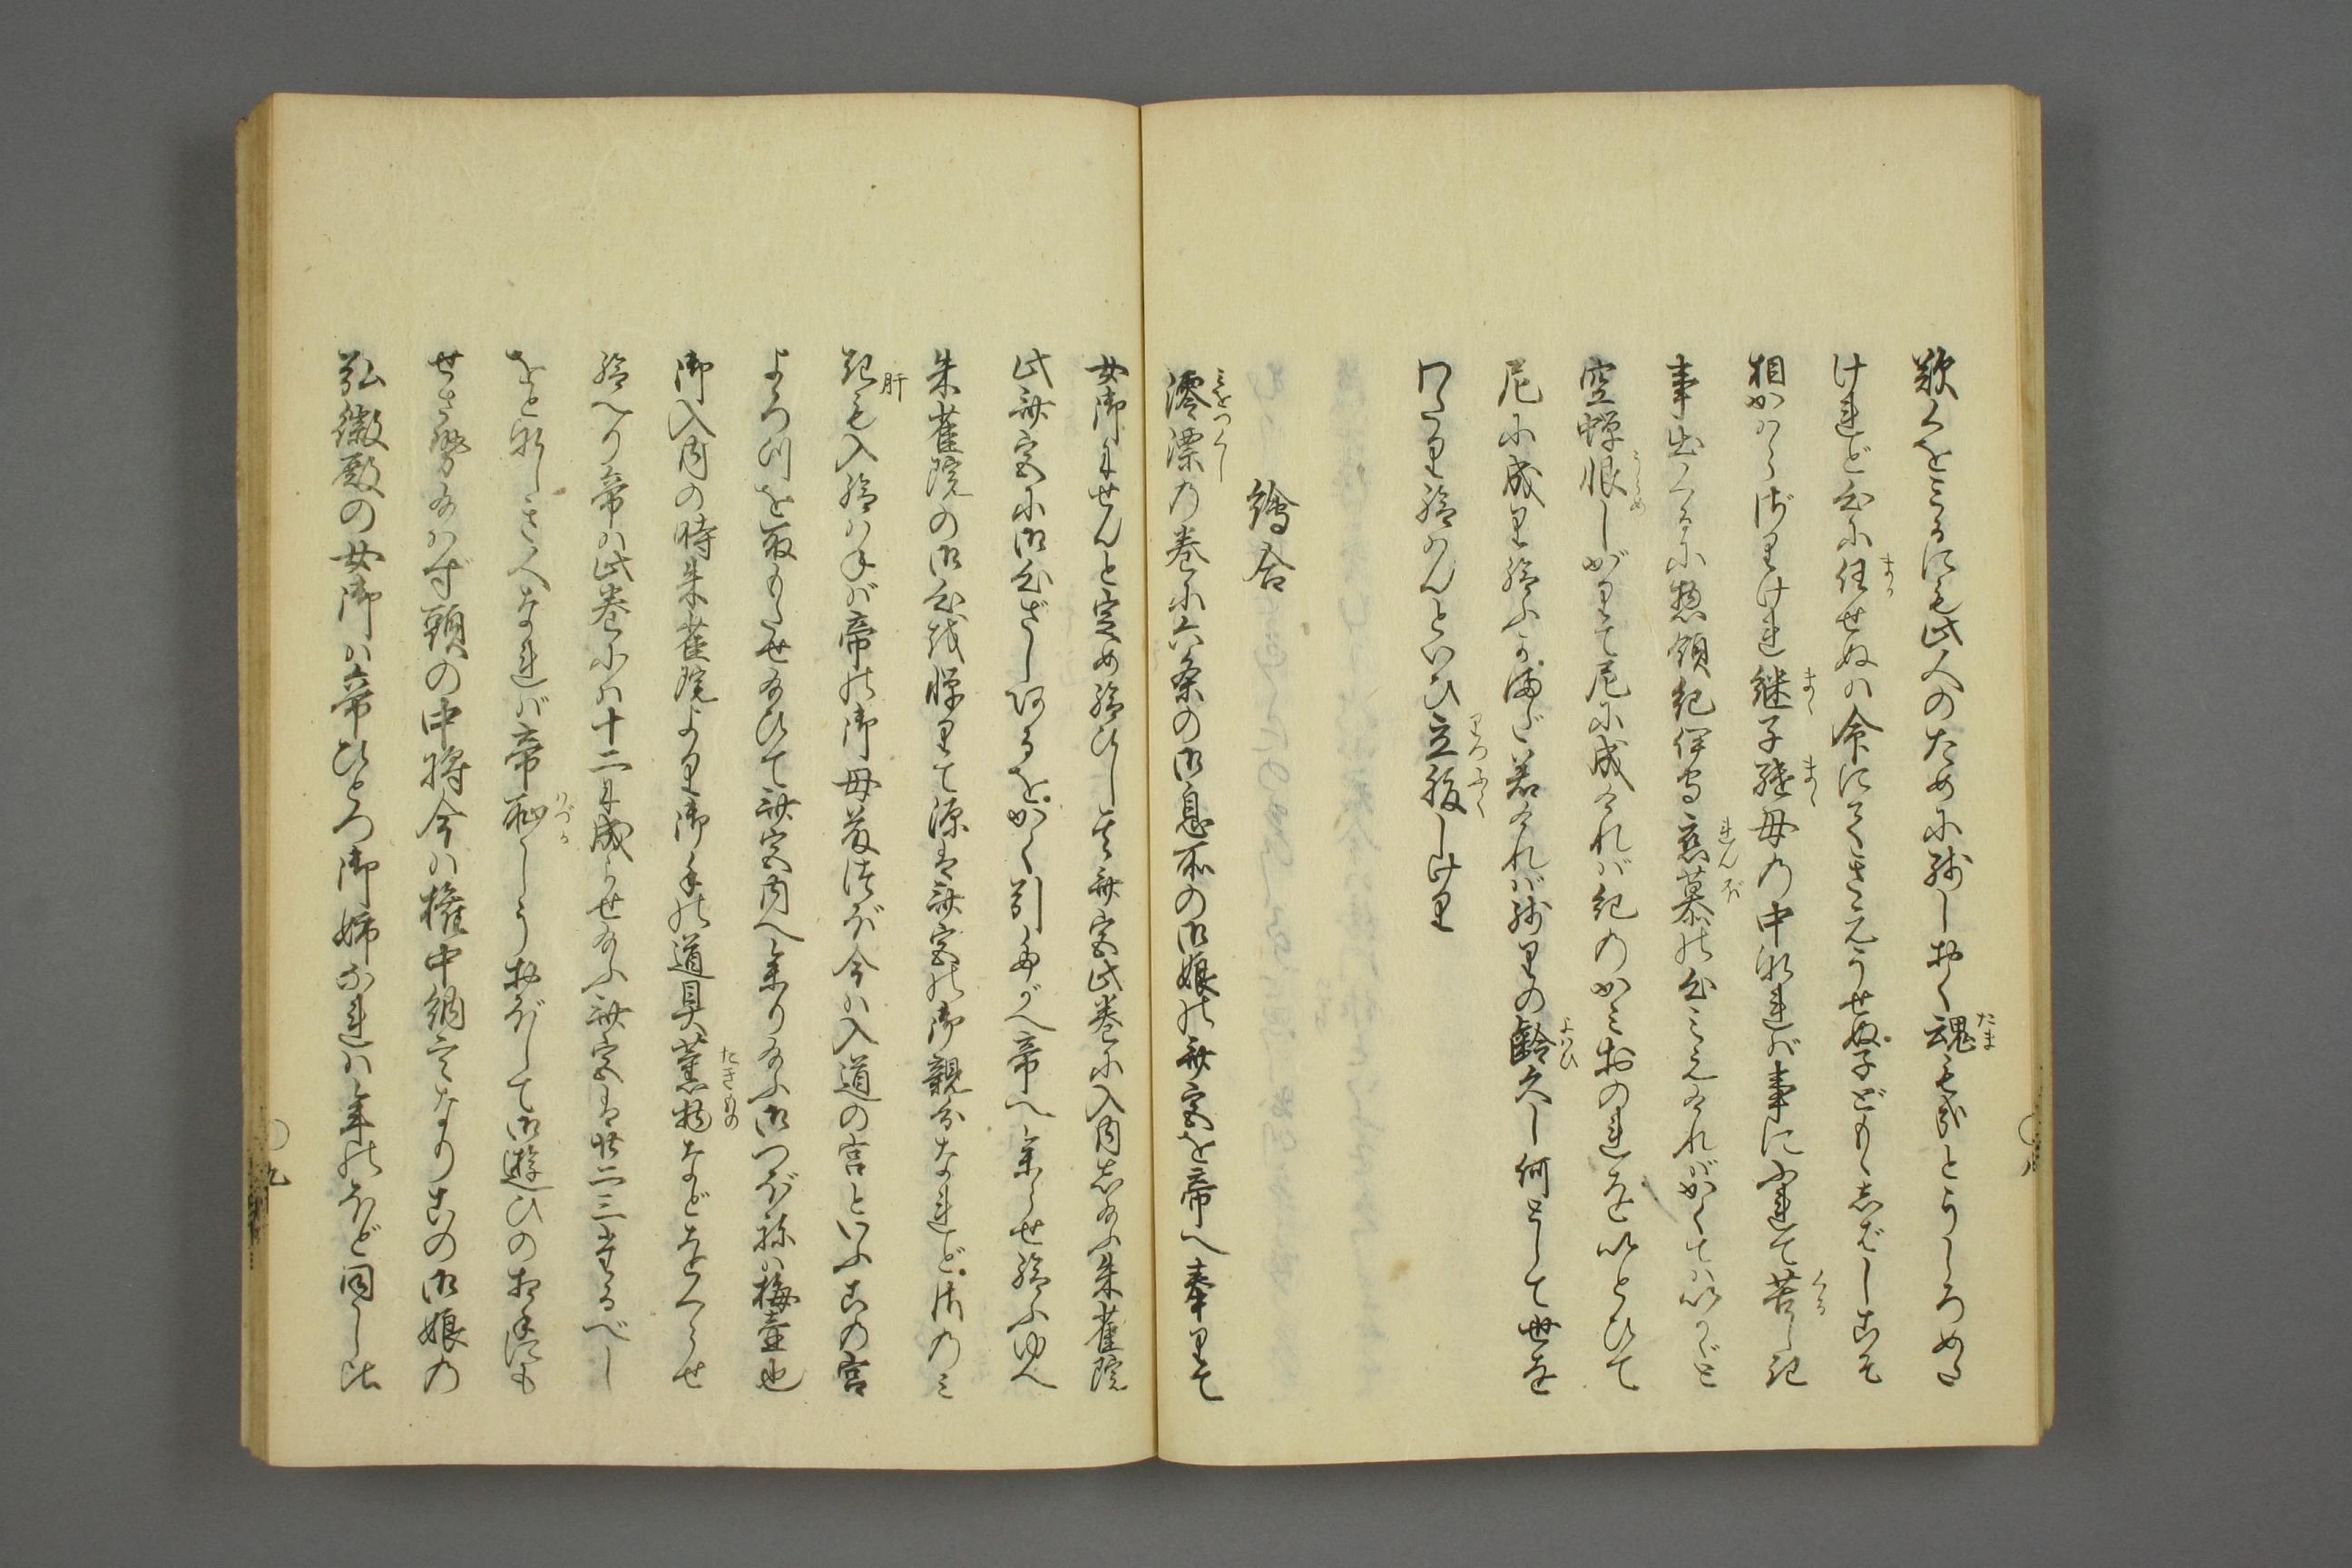 歎くをミるにも此人のため尓残しおく魂も哉とうしろめた
けれど心尓任せぬハ命にてきえうせぬ子どもゝ志ばしこそ
相かハらざりけれ継子継母の中なれバ事にふれて苦し紀
事出くる尓惣領紀伊守恋慕の心ミえけれバかくてハいかゞと
空蝉恨しがりて尼尓成けれバ紀のかミおのれを以とひて
尼尓成り給ふかまだ若けれバ残りの齢久し何として世を
わたり給ハんといひ立腹しけり
繪合
澪漂の巻尓六条の御息所の御娘の斎宮を帝へ奉りて
女御にせんと定め給ひし其斎宮此巻尓入内志給ふ朱雀院
此斎宮尓御心ざし何るをかく引たがへ帝へ参らせ給ふゆへ
朱雀院の御心越憚りて源は斎宮の御親分なれど御のミ
肝も入給ハねバ帝の御母藤つぼ今ハ入道の宮といふこの宮
よろ川を取もたせ給ひて斎宮内へ参り給ふ御つぼねハ梅壺也
御入内の時朱雀院より御手の道具薫物などをくらせ
給へり帝ハ此巻尓ハ十二に成らせ給ふ斎宮は廿二三なるべし
をとなしき人なれバ帝恥かしうおぼして御遊ひのお手にも
せさせ給ハず頭の中将今ハ権中納言なりこの御娘の
弘徽殿の女御ハ帝ひとつ御姉なれハ年のほど同し比